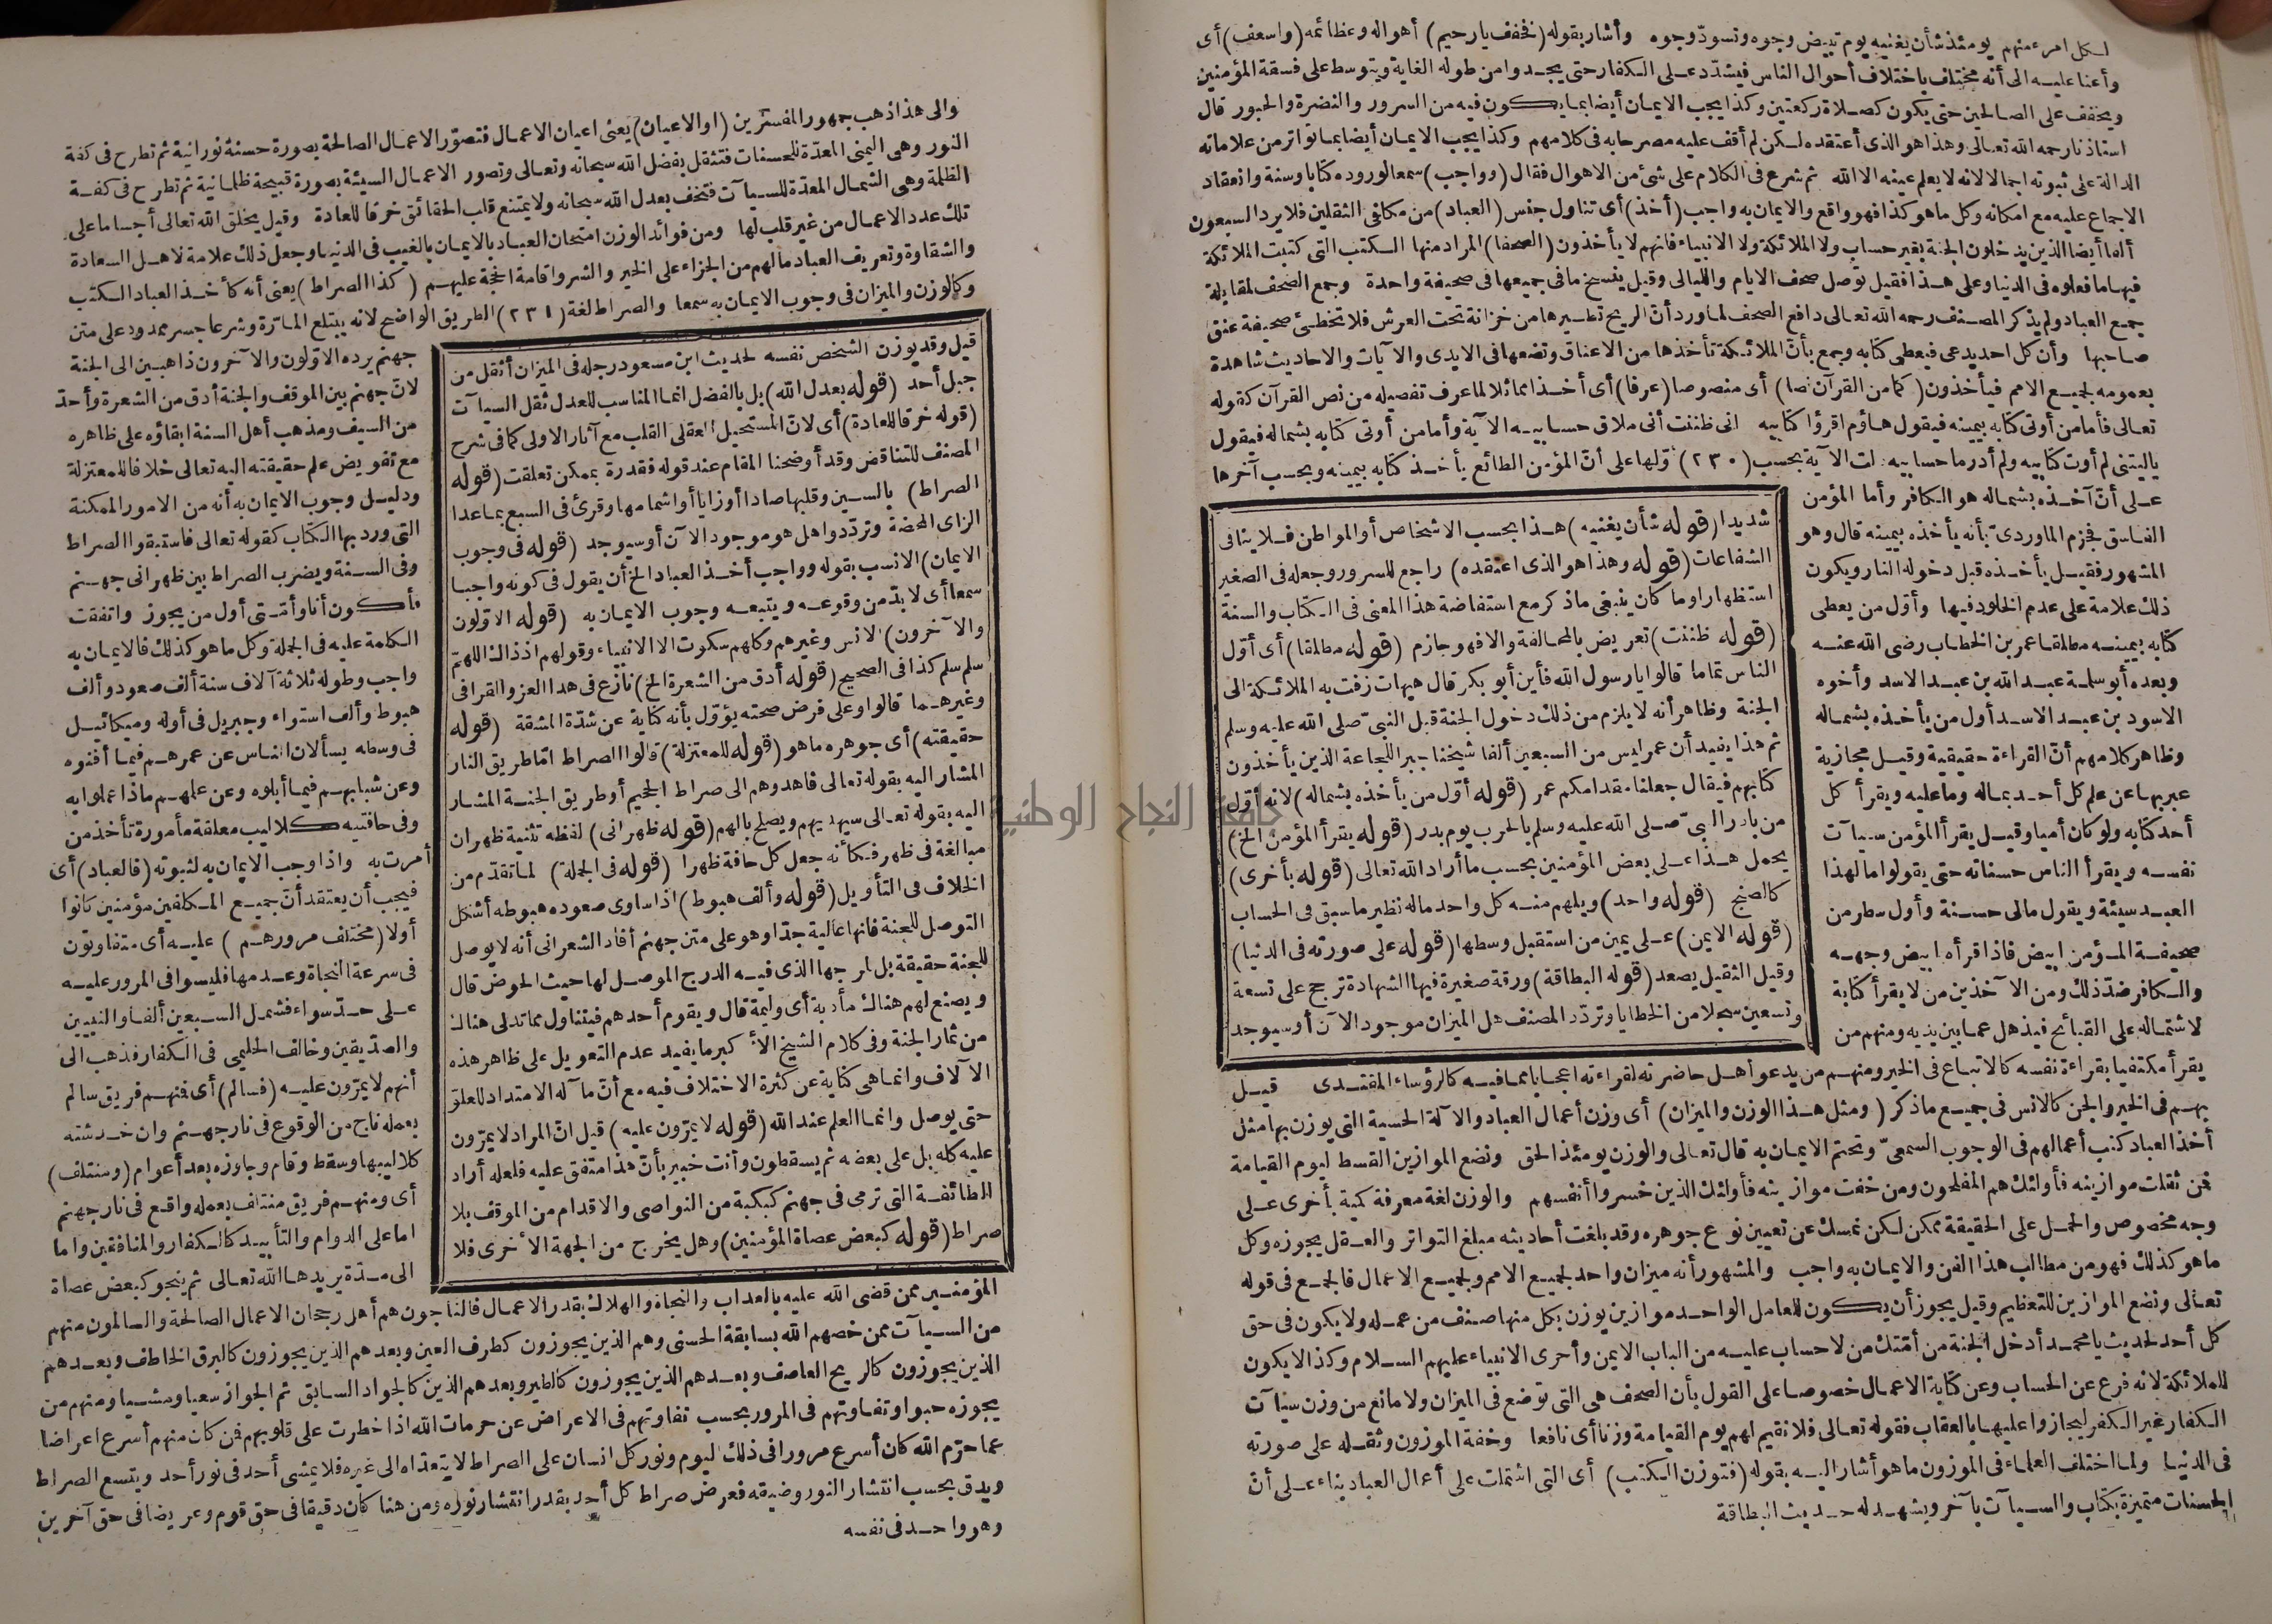 لكل امرء منهم يومئذ شأن يغنيه يوم تبيض وجوه وتسود وجوه وأشار بقوله (فخفف يا رحيم) أهواله وعظائمه (واسعف) أى
وأعنا عليه الى أنه مختلف باختلاف أحوال الناس فيشدد على الكفار حتى يجدوا من طوله الغاية ويتوسط على فسقة المؤمنين
ويخفف على الصالحين حتى يكون كصلاة ركعتين وكذا يجب الايمان أيضا بما يكون فيه من السرور والنضرة والحبور قال
استاذنا رحمه الله تعالى وهذا هو الذى أعتقده لكن لم أقف عليه مصرحا به فى كلامهم وكذا يجب الايمان أيضا بما تواتر من علاماته
الدالة على ثبوته اجمالا لانه لا يعلم عينه الا الله ثم شرع فى الكلام على شئ من الاهوال فقال (وواجب) سمعا لوروده كتابا وسنة وانعقاد
الاجماع عليه مع امكانه وكل ما هو كذا فهو واقع والايمان به واجب (أخذ) أى تناول جنس (العباد) من مكلفى الثقلين فلا يرد السبعون
ألفا أيضا الذين يدخلون الجنة بغير حساب ولا الملائكة ولا الانبياء فانهم لا يأخذون (الصحفا) المراد منها الكتب التى كتبت الملائكة
فيها ما فعلوه فى الدنيا وعلى هذا فقيل توصل صحف الايام والليالى وقيل ينسخ ما فى جميعها فى صحيفة واحدة وجمع الصحف لمقابلة
جمع العباد ولم يذكر المصنف رحمه الله تعالى دافع الصحف لما ورد أن الريح تطيرها من خزانة تحت العرش فلا تخطئ صحيفة عنق
صاحبها وأن كل احد يدعى فيعطى كتابه وجمع بأن الملائكة تأخذها من الاعناق وتضعها فى الايدى والآيات والاحاديث شاهدة
بعمومه لجميع الامم فيأخذون (كما من القرآن نصا) أى منصوصا (عرفا) أى أخذا مماثلا لما عرف تفصيله من نص القرآن كقوله
تعالى فأما من أوتى كتابه بيمينه فيقول هاؤم اقرؤا كتابيه انى ظننت أنى ملاق حسابيه الآية وأما من أوتى كتابه بشماله فيقول
ياليتنى لم أوت كتابيه ولم أدر ما حسابيه الآية بحسب (٢٣٠) أولها على أن المؤمن الطائع يأخذ كتابه بيمينه وبحسب آخرها
على أن آخذه بشماله هو الكافر وأما المؤمن
الفاسق فجزم الماوردى بأنه يأخذه بيمينه قال وهو
المشهور فقيل يأخذه قبل دخوله النار ويكون
ذلك علامة على عدم الخلود فيها وأول من يعطى
كتابه بيمينه مطلقا عمر بن الخطاب رضى الله عنه
وبعده أبو سلمة عبد الله بن عبد الاسد وأخوه
الاسود بن عبد الاسد أول من يأخذه بشماله
وظاهر كلامهم أن القراءة حقيقية وقيل مجازية
عبر بها عن علم كل أحد بماله وما عليه ويقرأ كل
أحد كتابه ولو كان أميا وقيل يقرأ المؤمن سيآت
نفسه ويقرأ الناس حسناته حتى يقولوا ما لهذا
العبد سيئة ويقول مالى حسنة وأول سطر من
صحيفة المؤمن ابيض فاذا قرأه ابيض وجهه
والكافر ضد ذلك ومن الآخذين من لا يقرأ كتابة
لاشتماله على القبائح فيذهل عما بين يديه ومنهم من
شديدا (قوله شأن يغنيه) هذا بحسب الاشخاص أو المواطن فلا ينافى
الشفاعات (قوله وهذا هو الذى اعتقده) راجع للسرور وجعله فى الصغير
استظهارا وما كان ينبغى ما ذكر مع استفاضة هذا المعنى فى الكتاب والسنة
(قوله ظننت) تعريض بالمخالفة والا فهو جازم (قوله مطلقا) أى أول
الناس تماما قالوا يا رسول الله فأين أبو بكر قال هيهات زفت به الملائكة الى
الجنة وظاهر أنه لا يلزم من ذلك دخول الجنة قبل النبى صلى الله عليه وسلم
ثم هذا يفيد أن عمر ليس من السبعين ألفا شيخنا جبر اللجاعة الذين يأخذون
كتابهم فيقال جعلنا مقدامكم عمر (قوله أول من يأخذه بشماله) لانه أول
من بادر النبى صلى الله عليه وسلم بالحرب يوم بدر (قوله يقرأ المؤمن الخ)
يحمل هذا على بعض المؤمنين بحسب ما أراد الله تعالى (قوله بأخرى)
كالصنج (قوله واحد) ويلهم منه كل واحد ماله نظير ما سبق فى الحساب
(قوله الايمن) على يمين من استقبل وسطها (قوله على صورته فى الدنيا)
وقيل الثقيل يصعد (قوله البطاقة) ورقة صغيرة فيها الشهادة ترجح على تسعة
وتسعين سجلا من الخطايا وتردد المصنف هل الميزان موجود الآن أو سيوجد
يقرأ مكتفيا بقراءة نفسه كالاتباع فى الخير ومنهم من يدعو أهل حاضرته لقراءته اعجابا بما فيه كالرؤساء المقتدى قيل
بهم فى الخير والجن كالانس فى جميع ما ذكر (ومثل هذا الوزن والميزان) أى وزن أعمال العباد والآلة الحسية التى يوزن بها مثل
أخذ العباد كتب أعمالهم فى الوجوب السمعى وتحتم الايمان به قال تعالى والوزن يومئذ الحق ونضع الموازين القسط ليوم القيامة
فمن ثقلت موازينه فأولئك هم المفلحون ومن خفت موازينه فأولئك الذين خسروا أنفسهم والوزن لغة معرفة كمية بأخرى على
وجه مخصوص والحمل على الحقيقة ممكن لكن نمسك عن تعيين نوع جوهره وقد بلغت أحاديثه مبلغ التواتر والعقل يجوزه وكل
ما هو كذلك فهو من مطالب هذا الفن والايمان به واجب والمشهور أنه ميزان واحد لجميع الامم ولجميع الاعمال فالجمع فى قوله
تعالى ونضع الموازين للتعظيم وقيل يجوز أن يكون للعامل الواحد موازين يوزن بكل منها صنف من عمله ولا يكون فى حق
كل أحد لحديث يا محمد أدخل الجنة من أمتك من لا حساب عليه من الباب الايمن وأحرى الانبياء عليهم السلام وكذا لا يكون
للملائكة لانه فرع عن الحساب وعن كتابة الاعمال خصوصا على القول بأن الصحف هى التى توضع فى الميزان ولا مانع من وزن سيئآت
الكفار غير الكفر ليجازوا عليها بالعقاب فقوله تعالى فلا نقيم لهم يوم القيامة وزنا أى نافعا وخفة الموزون وثقله على صورته
فى الدنيا ولما اختلف العلماء فى الموزون ما هو أشار اليه بقوله (فتوزن الكتب) أى التى اشتملت على أعمال العباد بناء على أن
الحسنات متميزة بكتاب والسيآت بآخر ويشهد له حديث البطاقة
والى هذا ذهب جمهور المفسرين (او الاعيان) يعنى اعيان الاعمال فتصور الاعمال الصالحة بصورة حسنة نورانية ثم تطرح فى كفة
النور وهى اليمنى المعدة للحسنات فتثقل بفضل الله سبحانه وتعالى وتصور الاعمال السيئة بصورة قبيحة ظلمانية ثم تطرح فى كفة
الظلمة وهى الشمال المعدة للسيآت فتخف بعدل الله سبحانه ولا يمتنع قلب الحقائق خرقا للعادة وقيل يخلق الله تعالى أجساما على
تلك عدد الاعمال من غير قلب لها ومن فوائد الوزن امتحان العباد بالايمان بالغيب فى الدنيا وجعل ذلك علامة لاهل السعادة
والشقاوة وتعريف العباد ما لهم من الجزاء على الخير والشر واقامة الحجة عليهم (كذا الصراط) يعنى أنه كأخذ العباد الكتب
وكالوزن والميزان فى وجوب الايمان به سمعا والصراط لغة (٢٣١) الطريق الواضح لانه يبتلع المارة وشرعا جسر ممدود على متن
قيل وقد يوزن الشخص نفسه لحديث ابن مسعود رجله فى الميزان أثقل من
جبل أحد (قوله بعدل الله) بل بالفضل انما المناسب للعدل ثقل السيآت
(قوله خرقا للعادة) أى لان المستحيل العقلى القلب مع آثار الاولى كما فى شرح
المصنف للتناقض وقد أوضحنا المقام عند قوله فقدرة بممكن تعلقت (قوله
الصراط) بالسين وقلبها صادا أو زايا أو اشمامها وقرئ فى السبع بما عدا
الزاى المحضة وترددوا هل هو موجود الآن أو سيوجد (قوله فى وجوب
الايمان) الانسب بقوله وواجب أخذ العباد الخ أن يقول فى كونه واجبا
سمعا أى لا بد من وقوعه ويتبعه وجوب الايمان به (قوله الاولون
والآخرون) الانس وغيرهم وكلهم سكوت الا الانبياء وقولهم اذ ذاك اللهم
سلم سلم كذا فى الصحيح (قوله أدق من الشعرة الخ) نازع فى هذا العز والقرافى
وغيرهما قالوا وعلى فرض صحته يؤول بأنه كناية عن شدة المشقة (قوله
حقيقته) أى جوهره ما هو (قوله للمعتزلة) قالوا الصراط اما طريق النار
المشار اليه بقوله تعالى فاهدوهم الى صراط الجحيم أو طريق الجنة المشار
اليه بقوله تعالى سيهديهم ويصلح بالهم (قوله ظهرانى) لفظه تثنية ظهران
مبالغة فى ظهر فكأنه جعل كل حافة ظهرا (قوله فى الجملة) لما تقدم من
الخلاف فى التأويل (قوله وألف هبوط) اذا ساوى صعوده هبوطه أشكل
التوصل للجنة فانها عالية جدا وهو على متن جهنم أفاد الشعرانى أنه لا يوصل
للجنة حقيقة بل لمرجها الذى فيه الدرج الموصل لها حيث الحوض قال
ويصنع لهم هناك مأدبة أى وليمة قال ويقوم أحدهم فيتناول مما تدلى هناك
من ثمار الجنة وفى كلام الشيخ الأكبر ما يفيد عدم التعويل على ظاهر هذه
الآلاف وانما هى كناية عن كثرة الاختلاف فيه مع أن مآله الامتداد للعلو
حتى يوصل وانما العلم عند الله (قوله لا يمرون عليه) قيل ان المراد لا يمرون
عليه كله بل على بعضه ثم يسقطون وأنت خبير بأن هذا متفق عليه فلعله أراد
الطائفة التى ترمى فى جهنم كبكبة من النواصى والاقدام من الموقف بلا
صراط (قوله كبعض عصاة المؤمنين) وهل يخرج من الجهة الأخرى فلا
جهنم يرده الاولون والآخرون ذاهبين الى الجنة
لان جهنم بين الموقف والجنة أدق من الشعرة وأحد
من السيف ومذهب أهل السنة ابقاؤه على ظاهره
مع تفويض علم حقيقته اليه تعالى خلافا للمعتزلة
ودليل وجوب الايمان به أنه من الامور الممكنة
التى ورد بها الكتاب كقوله تعالى فاستبقوا الصراط
وفى السنة ويضرب الصراط بين ظهرانى جهنم
فأكون أنا وأمتى أول من يجوز واتفقت
الكلمة عليه فى الجملة وكل ما هو كذلك فالايمان به
واجب وطوله ثلاثة آلاف سنة ألف صعود وألف
هبوط وألف استواء وجبريل فى أوله وميكائيل
فى وسطه يسألان الناس عن عمرهم فيما أفنوه
وعن شبابهم فيما أبلوه وعن علمهم ماذا عملوا به
وفى حافتيه كلاليب معلقة مأمورة تأخذ من
أمرت به واذا وجب الايمان به لثبوته (فالعباد) أى
فيجب أن يعتقد أن جميع المكلفين مؤمنين كانوا
أولا (مختلف مرورهم) عليه أى متفاوتون
فى سرعة النجاة وعدمها فليسوا فى المرور عليه
على حد سواء فشمل السبعين ألفا والنبيين
والصديقين وخالف الحليمى فى الكفار فذهب الى
أنهم لا يمرون عليه (فسالم) أى فمنهم فريق سالم
بعمله ناج من الوقوع فى نار جهنم وان خدشته
كلاليبها وسقط وقام وجاوزه بعد أعوام (ومنتلف)
أى ومنهم فريق منتلف بعمله واقع فى نار جهنم
اما على الدوام والتأبيد كالكفار والمنافقين واما
الى مدة يريدها الله تعالى ثم ينجو كبعض عصاة
المؤمنين ممن قضى الله عليه بالعذاب والنجاة والهلاك بقدر الاعمال فالناجون هم أهل رجحان الاعمال الصالحة والسالمون منهم
من السيآت ممن خصهم الله بسابقة الحسنى وهم الذين يجوزون كطرف العين وبعدهم الذين يجوزون كالبرق الخاطف وبعدهم
الذين يجوزون كالريح العاصف وبعدهم الذين يجوزون كالطير وبعدهم الذين كالجواد السابق ثم الجواز سعيا ومشيا ومنهم من
يجوزه حبوا وتفاوتهم فى المرور بحسب تفاوتهم فى الاعراض عن حرمات الله اذا خطرت على قلوبهم فمن كان منهم أسرع اعراضا
عما حرم الله كان أسرع مرورا فى ذلك اليوم ونور كل انسان على الصراط لا يتعداه الى غيره فلا يمشى أحد فى نور أحد ويتسع الصراط
ويدق بحسب انتشار النور وضيقه فعرض صراط كل أحد بقدر انتشار نوره ومن هنا كان دقيقا فى حق قوم وعريضا فى حق آخرين
وهو واحد فى نفسه
جامعة النجاح الوطنية